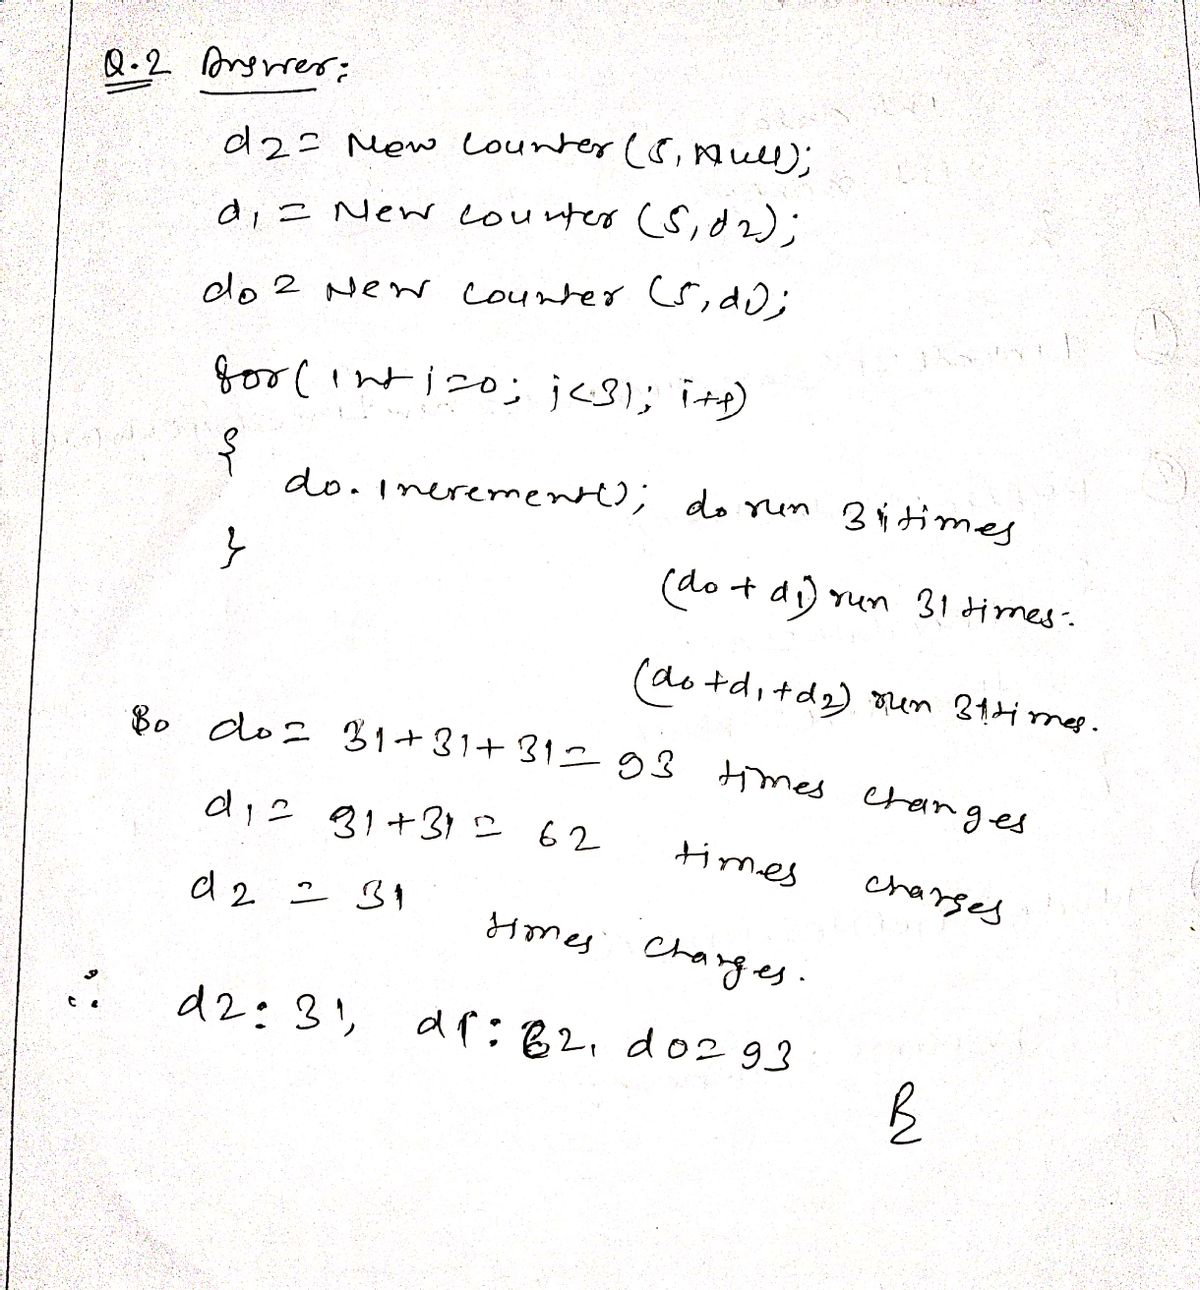 Q.2 Answer:
d2 = New Counter (5, Null);
d1 = New counter (5, d2);
do = New counter (5, d1);
for( int i=0; i<31; i++)
{
do. increment(); do run 31 times
}
(do + d1) run 31 times.
(do + d1 + d2) run 31 times.
So do = 31+31+31 = 93 times changes
d1 = 31+31 = 62 times changes
d2 = 31 times changes.
∴ d2: 31, d1: 62, do = 93